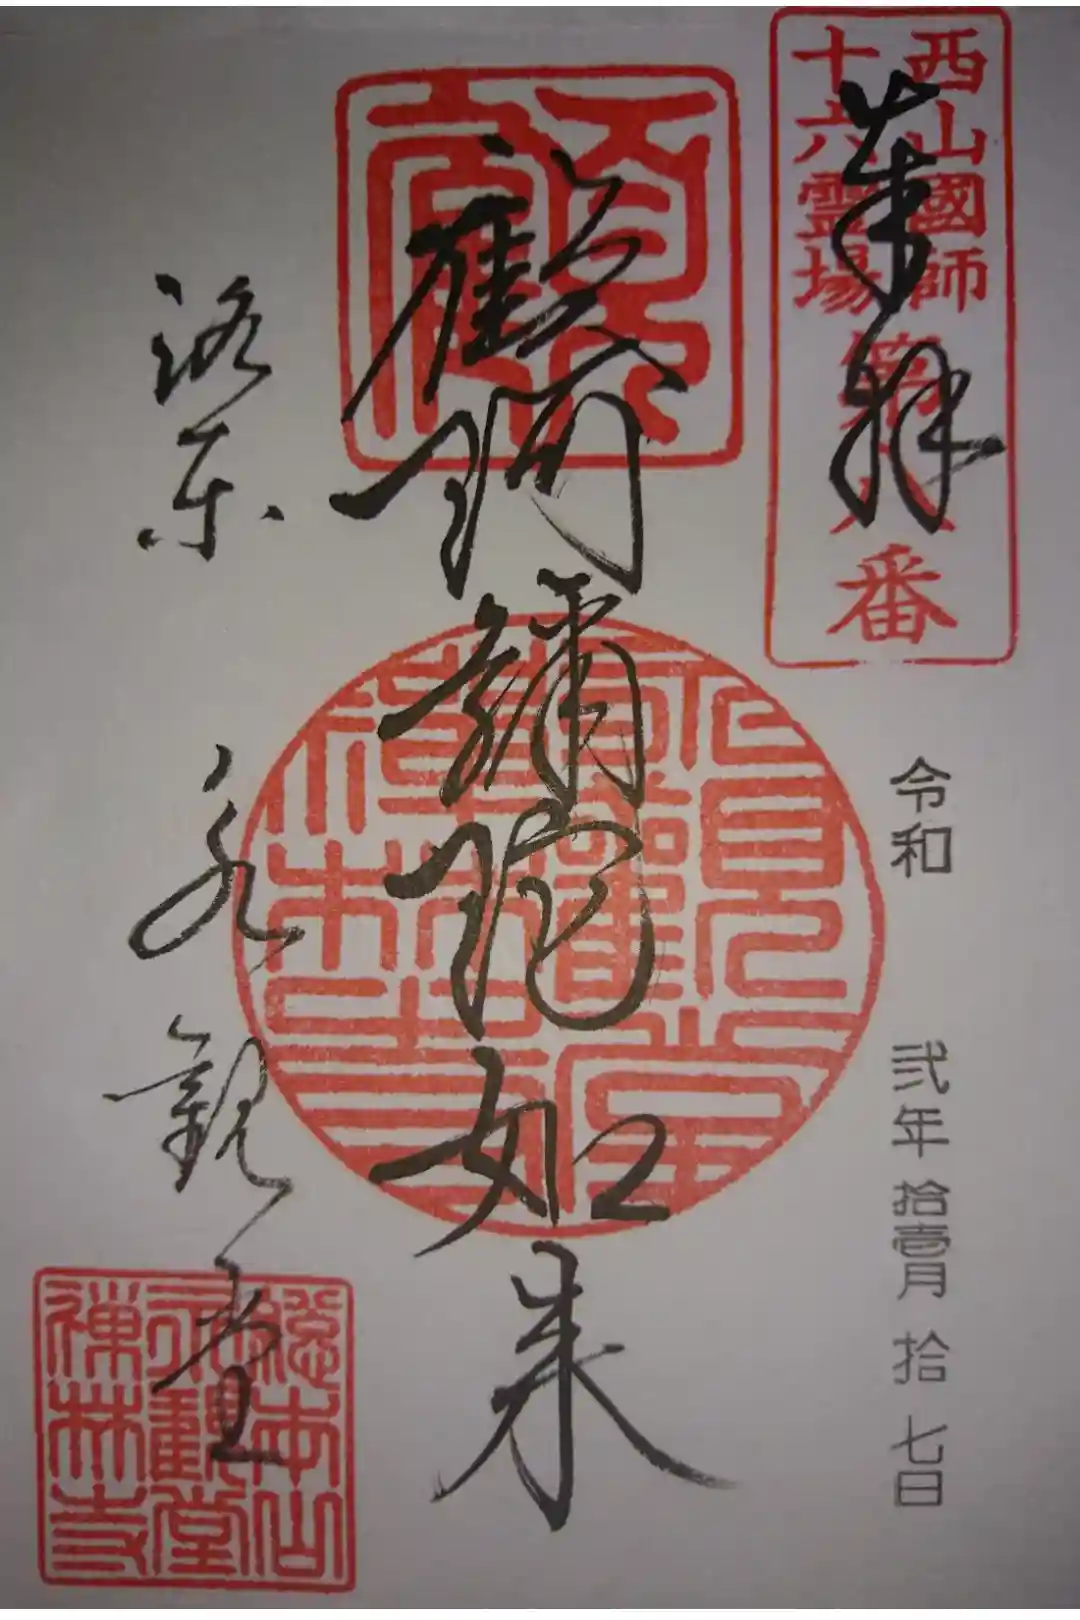 西山國師
十六霊場
第八番
奉拝
令和 弐年 拾壹月 拾七日
顧阿彌陀如来
洛東 永観堂
總本山
永觀堂
禪林寺